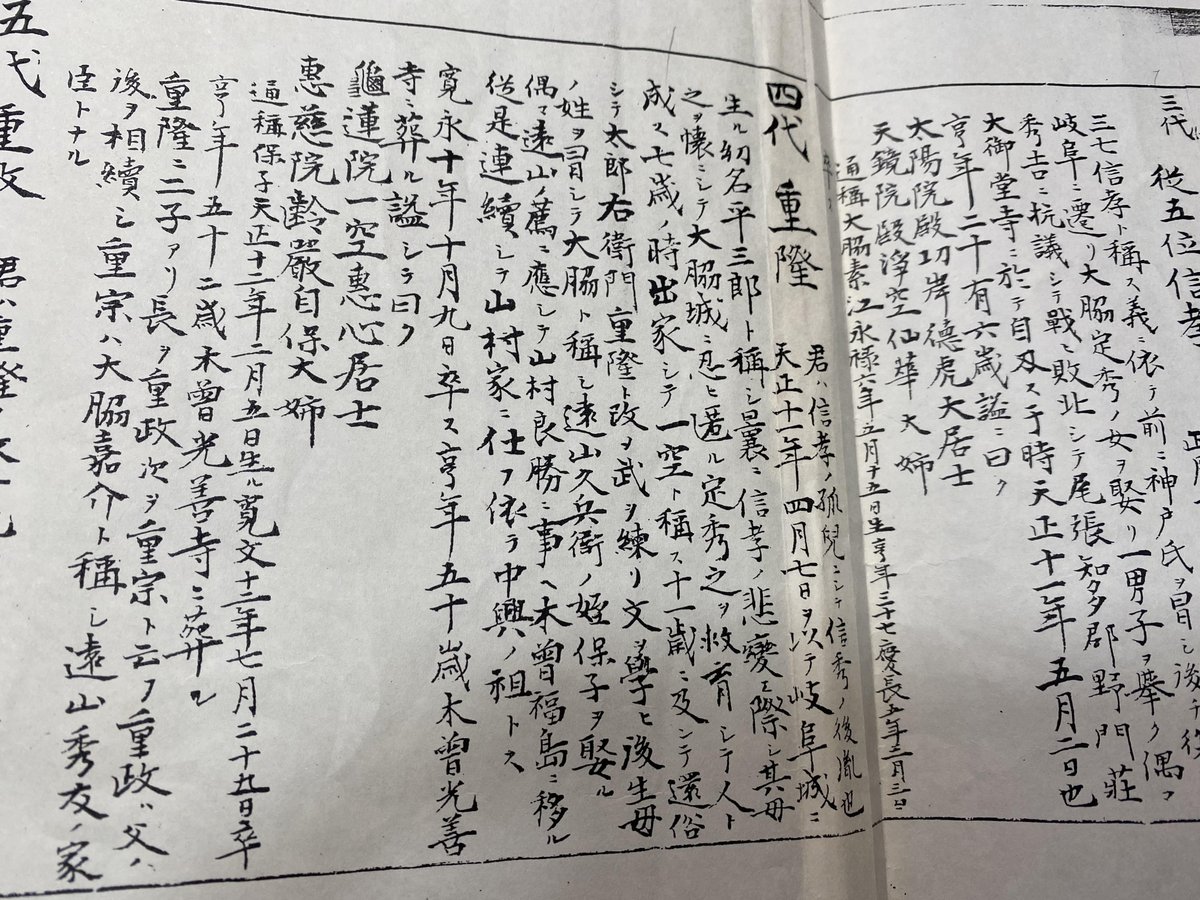 三代 従五位信孝
三七信孝ト稱ス義ニ依テ前ニ神戸氏ヲ冒シ後チ
岐阜ニ遷リ大脇定秀ノ女ヲ娶リ一男子ヲ擧ク偶々
秀吉ニ抗議シテ戰ヒ敗北シテ尾張知多郡野門莊
大御堂寺ニ於テ自刃ス于時天正十一年五月二日也
享年二十有六歳謚ニ曰ク
太陽院殿功岸德虎大居士
天鏡院殿淨空仙華大姉
通稱大脇素江永禄六年五月十五日生享年三十七慶長五年二月三日
四代 重隆 君ハ信孝ノ孤兒ニシテ信秀ノ後胤也
天正十一年四月七日ヲ以テ岐阜城ニ
生ル幼名平三郎ト稱シ曩ニ信孝ノ悲變ニ際シ其母
之ヲ懐ニシテ大脇城ニ忍ヒ匿ル定秀之ヲ救育シテ人ト
成ス七歳ノ時出家シテ一空ト稱ス十一歳ニ及ンテ還俗
シテ太郎右衛門重隆ト改ヲ武ヲ練リ文ヲ學ヒ後生母
ノ姓ヲ冒シテ大脇ト稱シ遠山久兵衛ノ姪保子ヲ娶ル
偶々遠山ノ薦ニ應シテ山村良勝ニ事ヘ木曽福島ニ移ル
従是連續シテ山村家ニ仕フ依テ中興ノ祖トス
寛永十年十月九日卒ス享年五十歳木曽光善
寺ニ葬ル謚シテ曰ク
龜蓮院一空惠心居士
惠慈院齡嚴自保大姉
通稱保子天正十二年二月五日生ル寛文十二年七月二十九日卒
享年五十二歳木曽光善寺ニ葬ル
重隆ニ二子アリ長ヲ重政次ヲ重宗ト云フ重政ハ父ノ
後ヲ相續シ重宗ハ大脇嘉介ト稱シ遠山秀友ノ家
臣トナル
五代 重政 君ハ重隆ノ